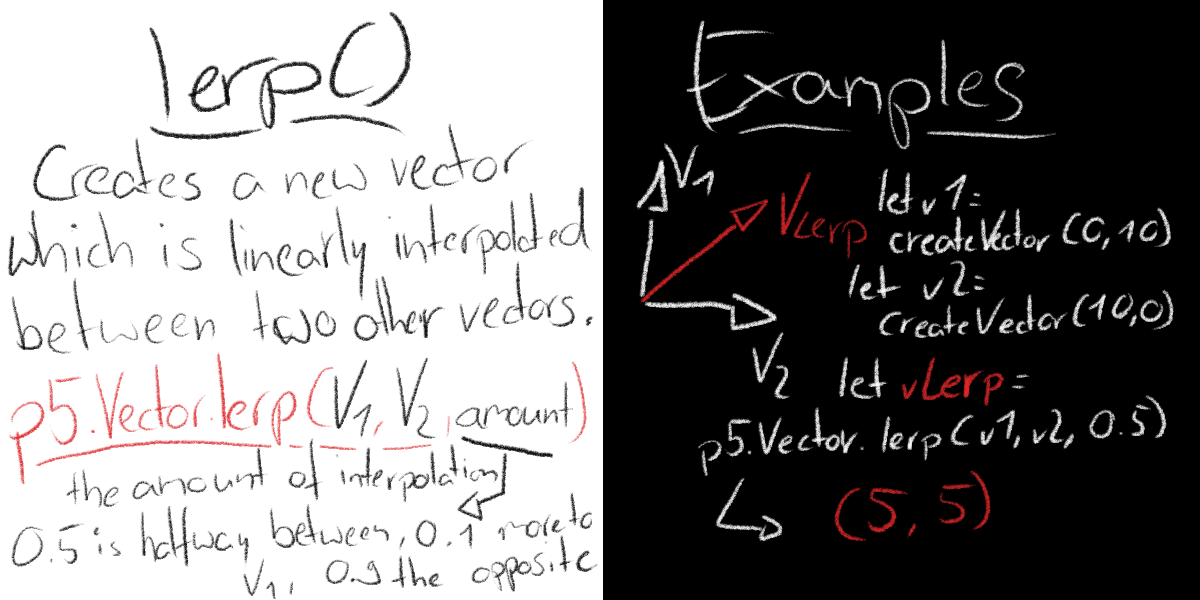 lerp()
Creates a new vector
which is linearly interpolated
between two other vectors.
p5.Vector.lerp(V1, V2, amount)
the amount of interpolation
0.5 is halfway between, 0.1 more to
V1, 0.9 the opposite
Examples
V1
VLerp
V2
let v1=
createVector (0,10)
let v2=
createVector(10,0)
let vLerp=
p5.Vector.lerp(v1,v2, 0.5)
(5,5)